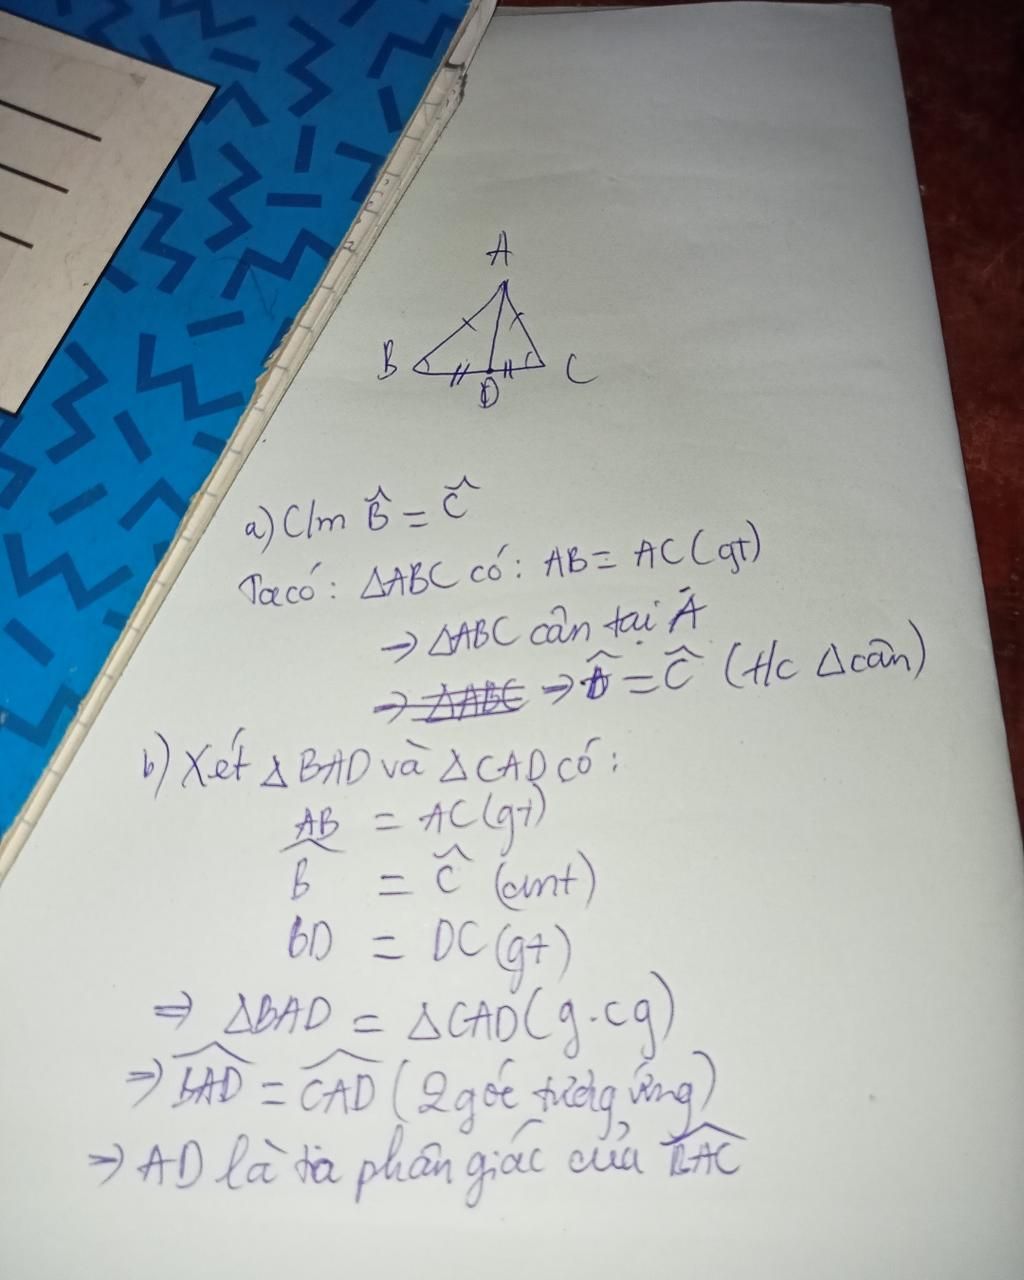 A
B
C
D
a) C/m B̂ = Ĉ
Ta có : ΔABC có : AB = AC (gt)
→ ΔABC cân tại A
→ ΔABC → B̂ = Ĉ (t/c Δ cân)
b) Xét Δ BAD và Δ CAD có :
AB = AC (gt)
B̂ = Ĉ (cmt)
BD = DC (gt)
⇒ ΔBAD = ΔCAD (g.cg)
⇒ BAD = CAD (2 góc tương ứng)
⇒ AD là tia phân giác của BAC